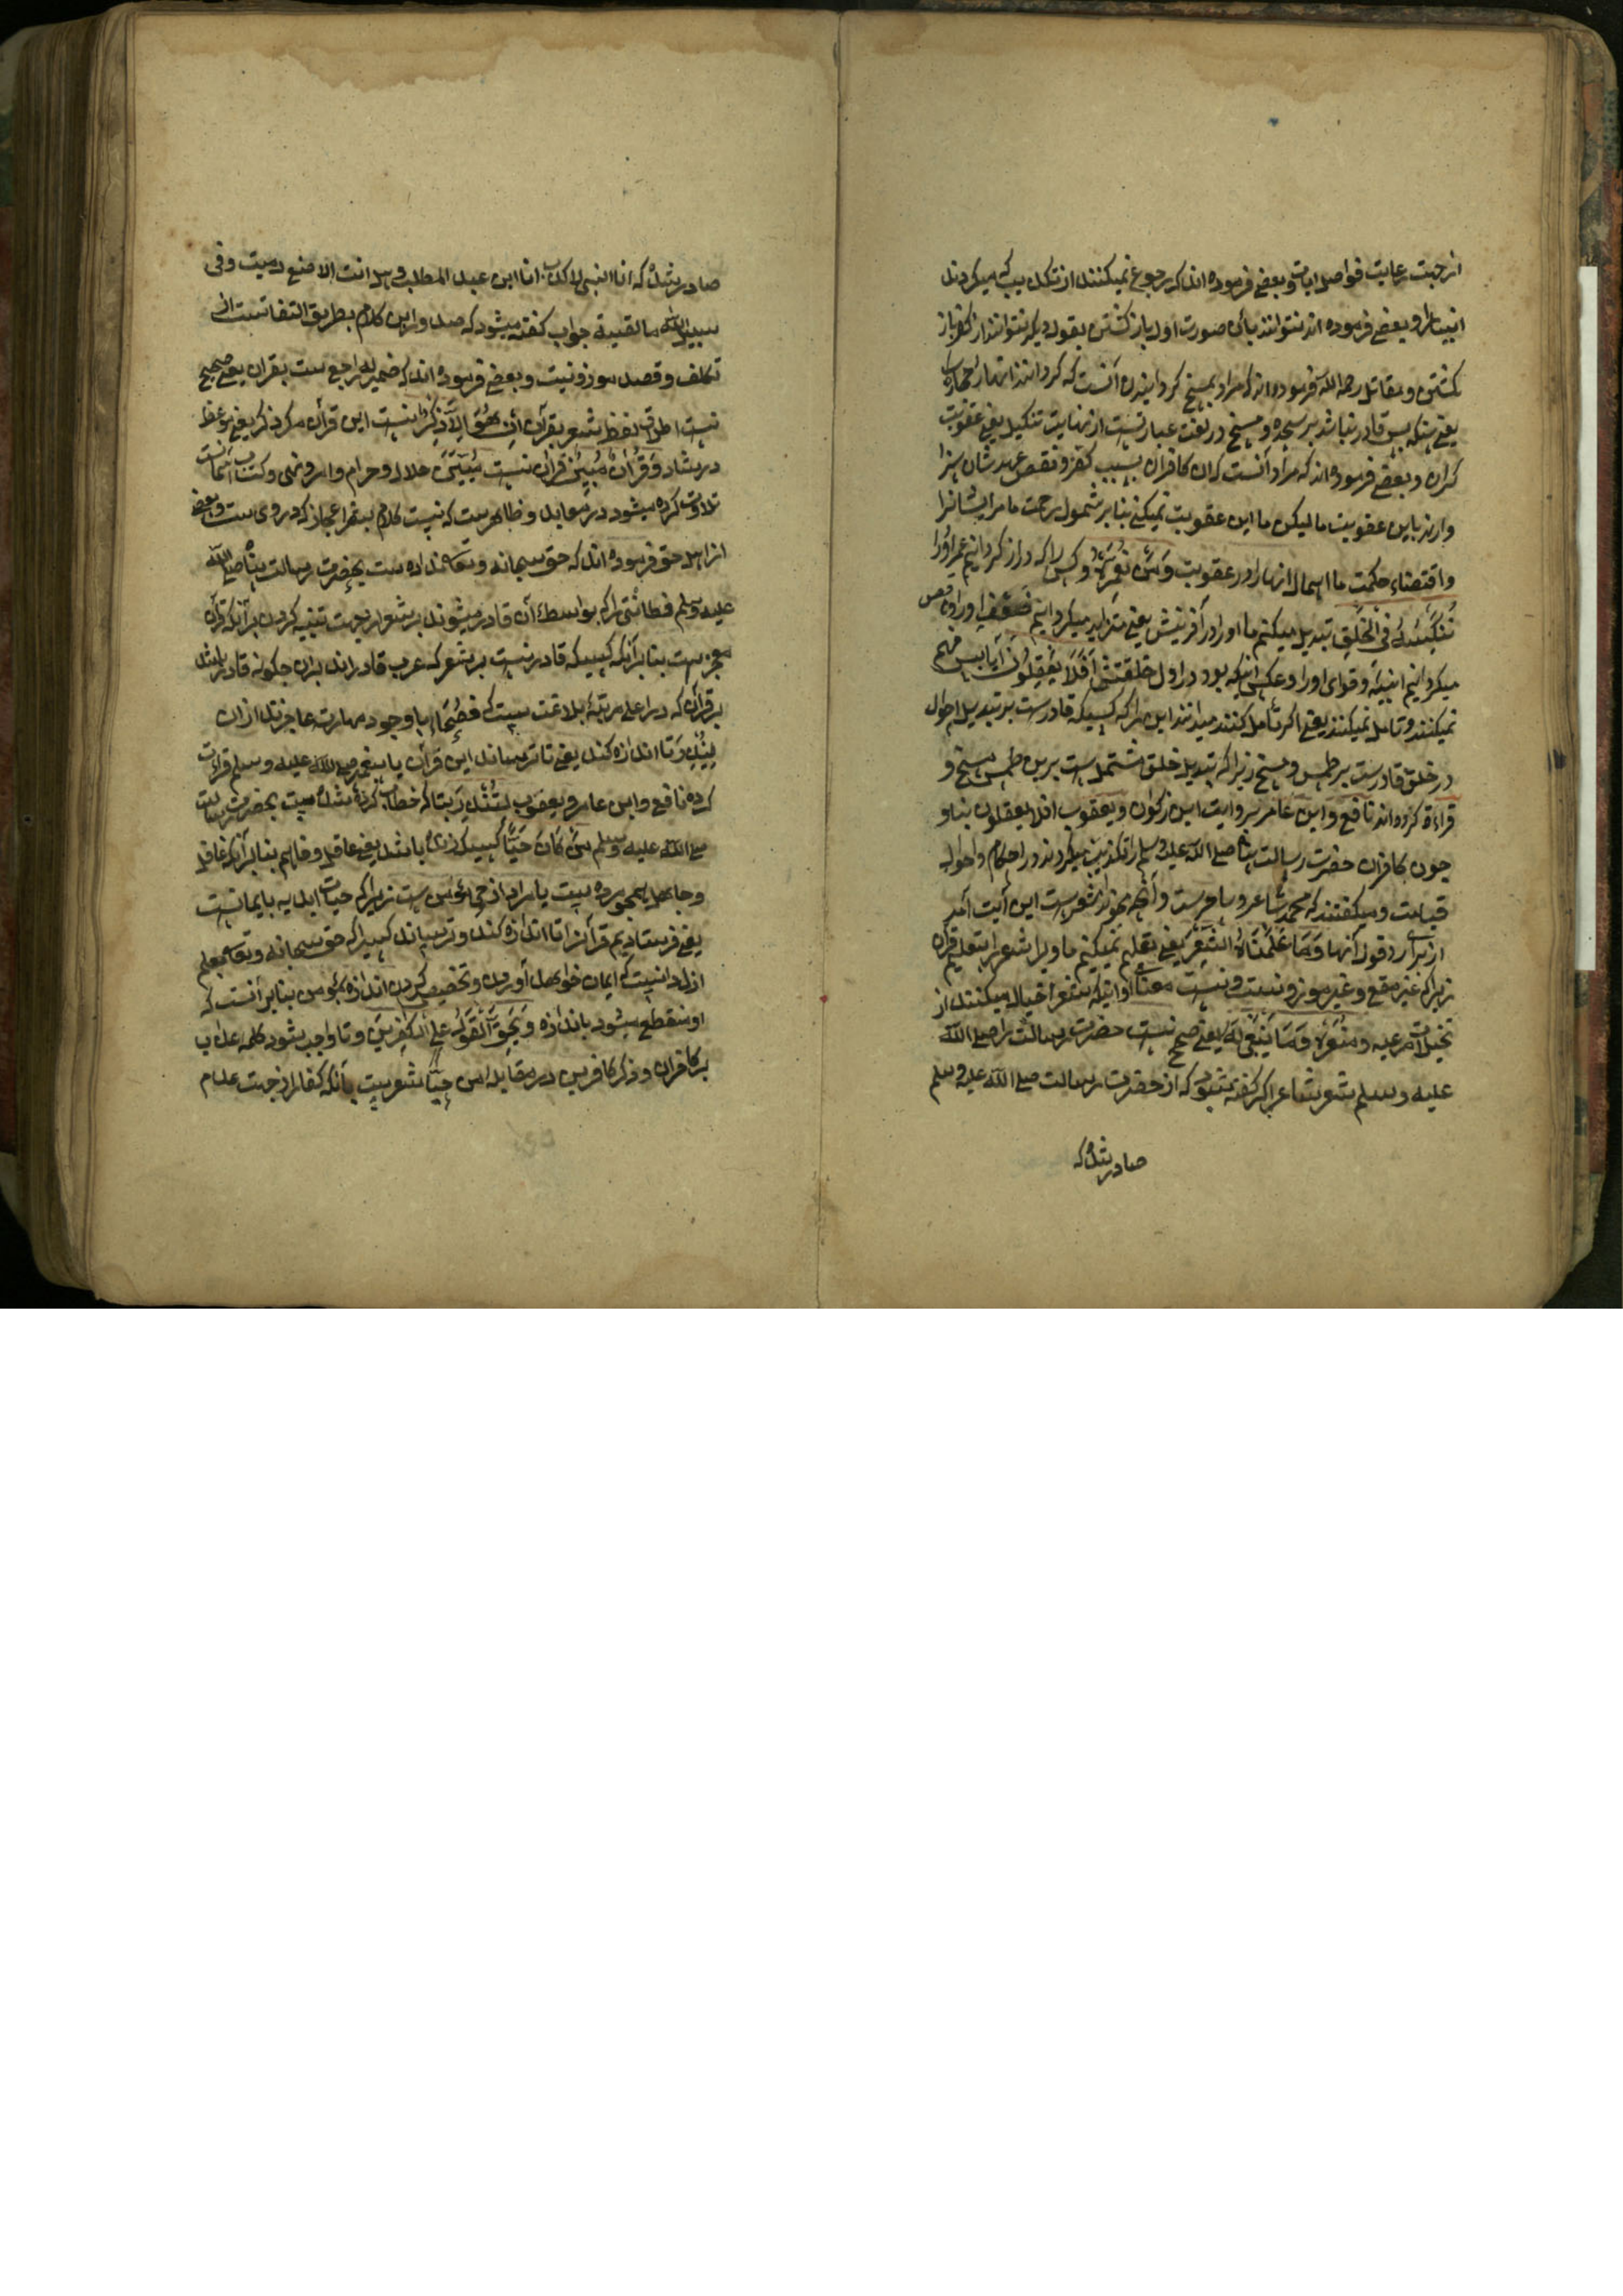 از جهت رعایت فواصل ایات و بعضی فرموده اند که رجوع نمیکنند از تکذیب که میکردند
انبیا را و بعضی فرموده اند نتوانند بآن صورت اول باز کشتن بقول دیکر نتوانند از کفر باز
کشتن و مقاتل رحمه الله فرموده اند که مراد بمسخ کردانیدن آنست که کردانند انها را حجاره
یعنی سنک پس قادر نباشد بر سجده و مسخ در لغت عبارتست از نهایت تنکیل یعنی عقوبت
کران و بعضی فرموده اند که مراد آنست که این کافران بسبب کفر و نقص عهد شان سزا
وارند باین عقوبت ما لیکن ما این عقوبت نمیکنیم بنا بر شمول رحمت ما مر ایشانرا
و اقتضاء حکمت ما امهال انها را در عقوبت وَمَنْ نُعَمِّرْهُ و کس را که دراز کردانیم عمر او را
نُنَكِّسْهُ فِي الْخَلْقِ تبدیل میکنیم ما او را در آفرینش یعنی متزاید میکردانیم ضعف او را و ناقص
میکردانیم انبیه و قوای او را و عکس آنکه بود در اول خلقتش أَفَلَا يَعْقِلُونَ آیا پس فهم
نمیکنند و تامل نمیکنند یعنی اکر تامل کنند میدانند این را که کسیکه قادرست بر تبدیل احوال
در خلق قادرست بر طمس و مسخ زیرا که تبدیل خلق مشتمل است برین طمس و مسخ و
قراءة کرده اند نافع و ابن عامر بروایت ابن ذکوان و یعقوب افلا یعقلون بتا و
چون کافران حضرت رسالت پناه صلی الله علیه وسلم را تکذیب میکردند در احکام و احوال
قیامت و میکفتند که محمد شاعر و ساحرست و آنچه میخواند شعرست این آیت آمد
از برای رد قول آنها وَمَا عَلَّمْنَاهُ الشِّعْرَ یعنی تعلیم نمیکنیم ما ویرا شعر بتعلیم قرآن
زیرا که غیر مقفع و غیر موزونست و نیست معنای او اینکه شعرا خیال میکنند از
تخیلات مرغبه و منفره وَمَا يَنْبَغِي لَهُ یعنی صحیح نیست حضرت رسالت را صلی الله
علیه وسلم شعر شاعر اکر کفته شود که از حضرت رسالت صلی الله علیه وسلم
صادر شده که
صادر شده که انا النبی لا کذب انا ابن عبد المطلب و هل انت الا اصبع دمیت وفی
سبیل الله ما لقیت جواب کفته میشود که صدور این کلام بطریق اتفاقست از
تکلف و قصد موزونیت و بعضی فرموده اند که ضمیر له راجع ست بقران یعنی صحیح
نیست اطلاق لفظ شعر بقرآن إِنْ هُوَ إِلَّا ذِكْرٌ نیست این قرآن مکر ذکر یعنی موعظه
در شاد وَقُرْآنٌ مُبِينٌ قرآن نیست مُبَیَّن حلال و حرام و امر و نهی و کتاب آسمانیست
تلاوت کرده میشود در معابد و ظاهرست که نیست کلام بشر اعجاز که در وی ست و بعضی
از اهل حق فرموده اند که حق سبحانه و تعالی نداده ست بحضرت رسالت پناه صلی الله
علیه وسلم فطانتی را که بواسطه آن قادر میشوند بر شعر از جهت تنبیه کردن بر آنکه قرآن
معجزست بنا بر آنکه کسیکه قادر نیست بر شعر که عرب قادراند بران چکونه قادر باشد
بر قرآن که در اعلی مرتبۀ بلاغت ست که فُصَحَاء با وجود مهارت عاجزند از ان
لِيُنْذِرَ تا اندازه کند یعنی تا ترساند این قرآن یا پیغمبر صلی الله علیه وسلم قراءت
کرده نافع و ابن عامر و یعقوب لِتُنْذِرَ بتا که خطاب کرده شده ست بحضرت رسالت
صلی الله علیه وسلم مَنْ كَانَ حَيًّا کسی که زنده باشد یعنی عاقل و فاهم بنا بر آنکه غافل
و جاهل همچو مرده ست یا مراد از حی مؤمن ست زیرا که حیات ابدیه بایمانست
یعنی فرستادیم قرآنرا تا اندازه کند و ترساند کسیرا که حق سبحانه و تعالی بعلم
ازلی دانست که ایمان خواهد آوردن و تخصیص کردن اندازه بمؤمن بنا بر آنست که
او منقطع میشود باندازه وَيَحِقَّ الْقَوْلُ عَلَى الْكَافِرِينَ و تا واجب شود کلمه عذاب
بر کافران و ذکر کافرین در مقابله من حیّا مشعرست بآنکه کفار از جهت عدم